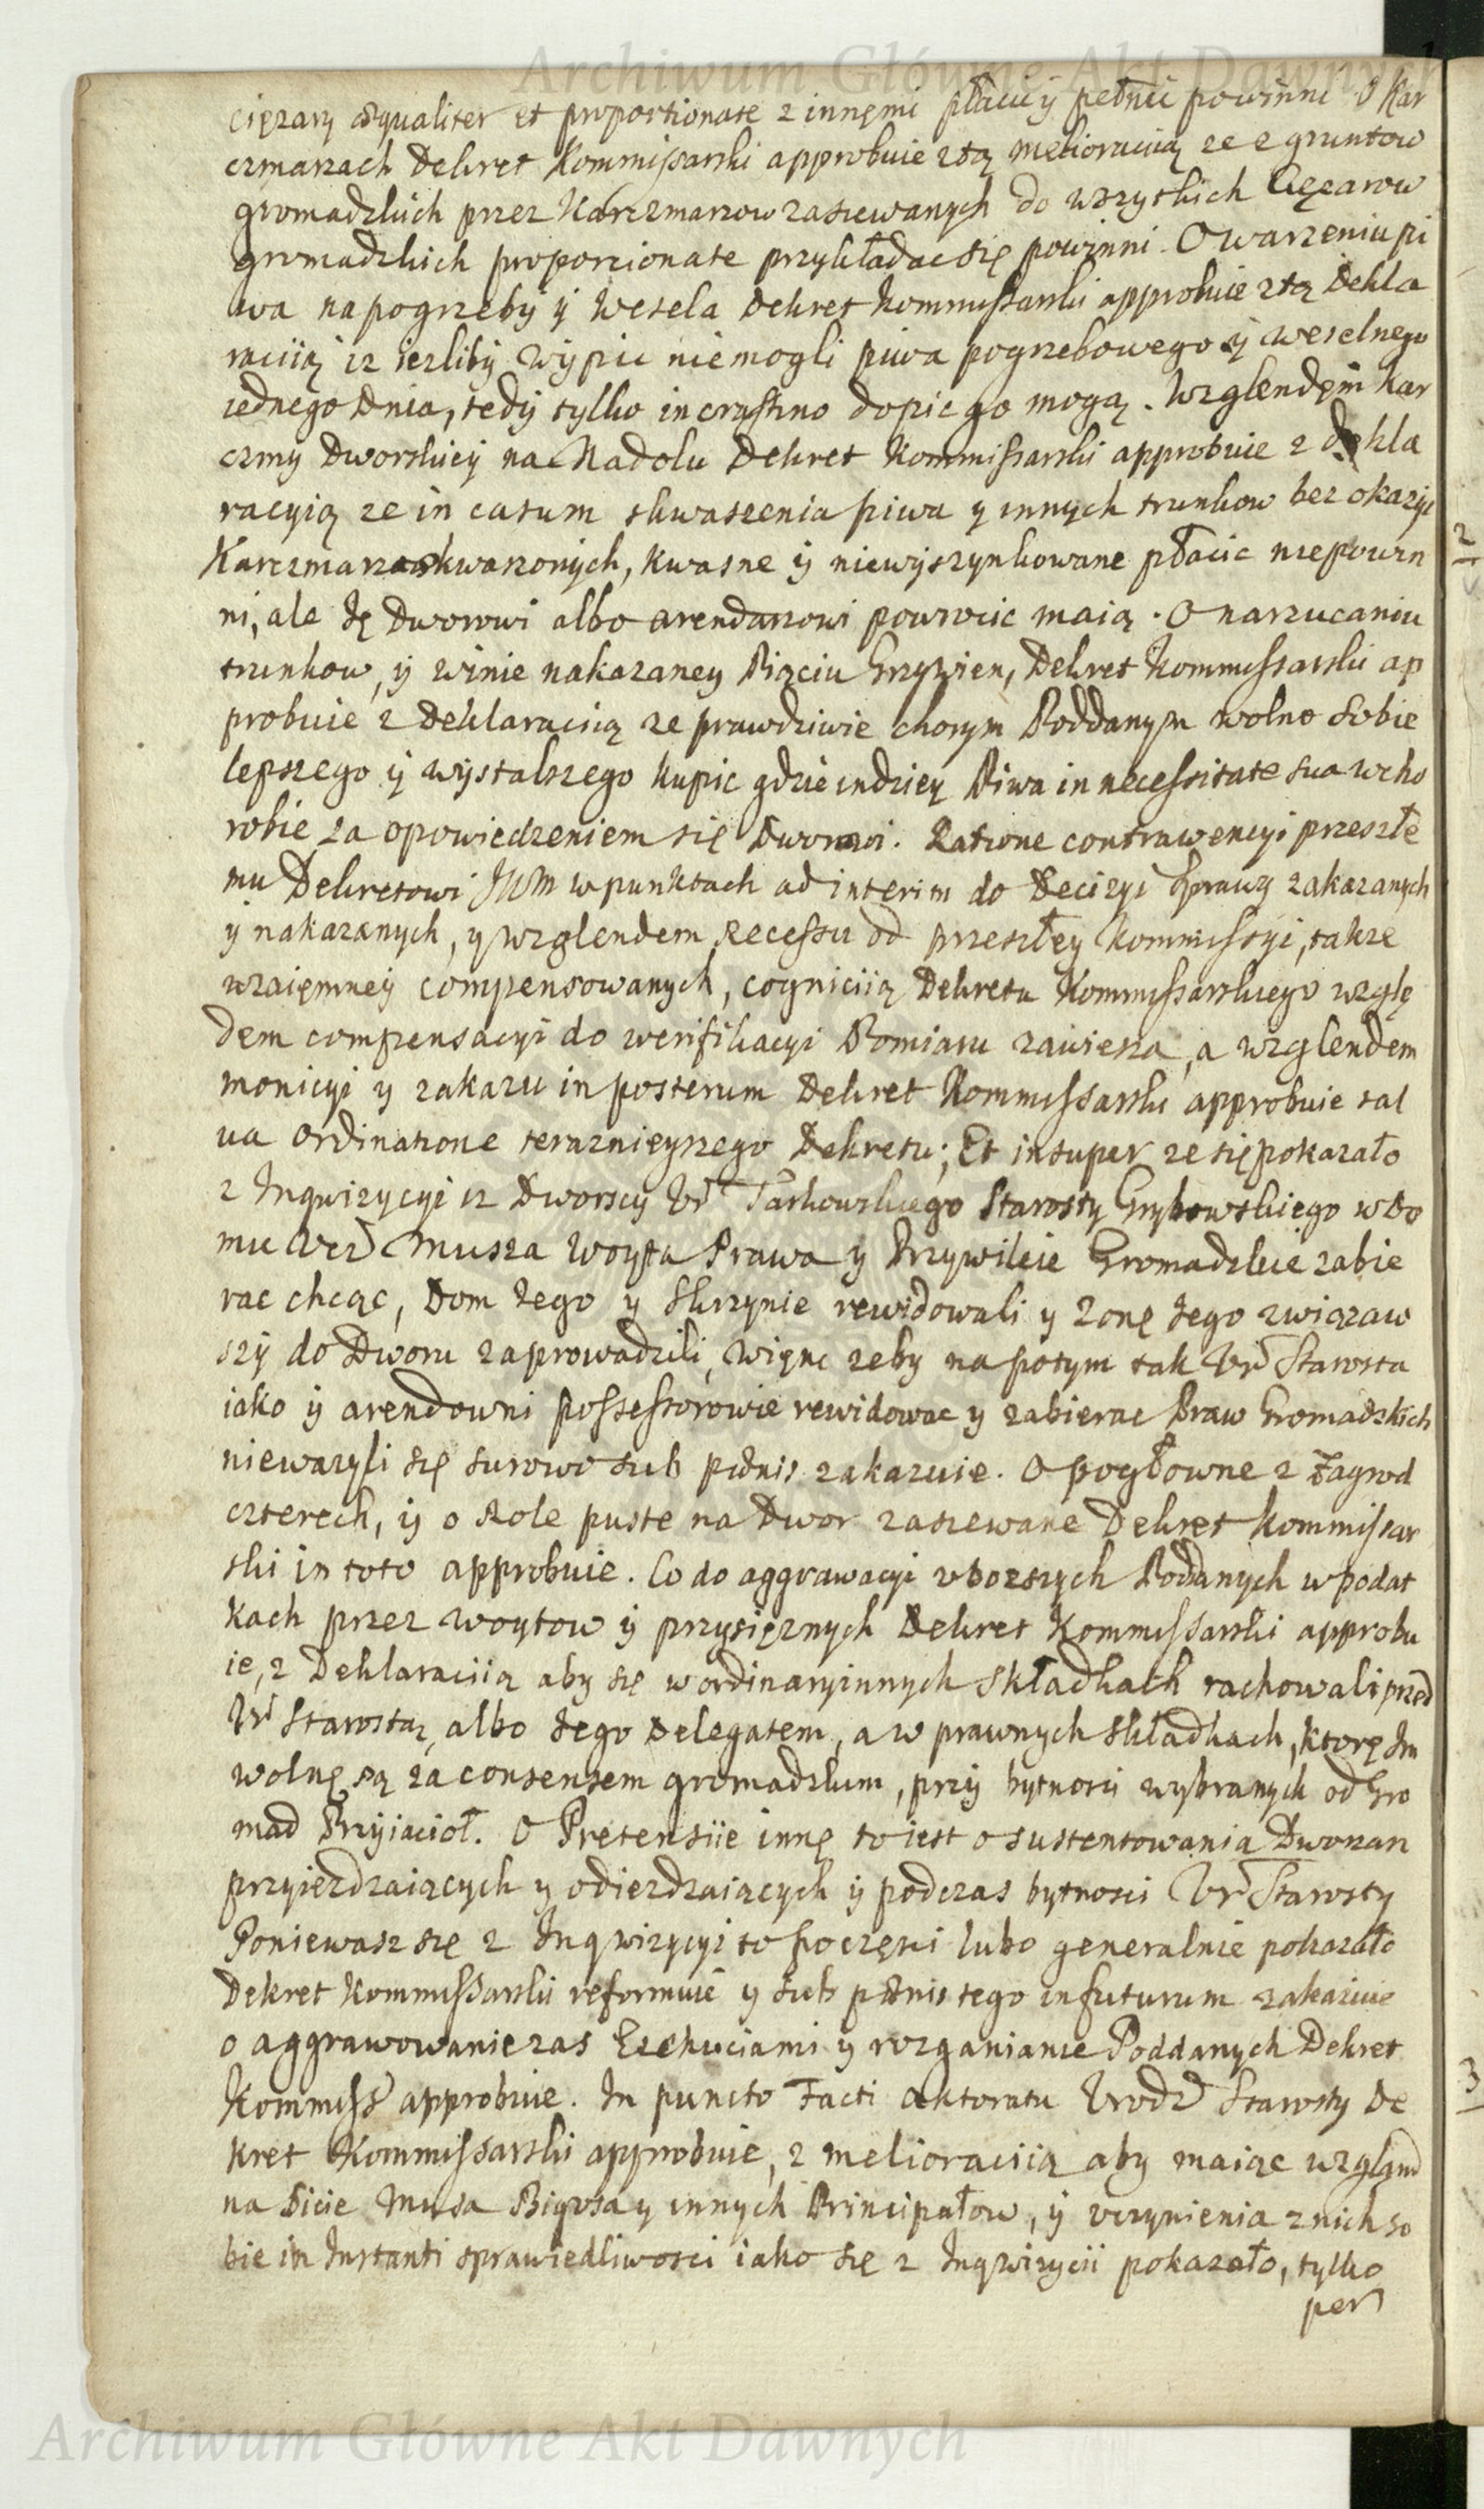 Archiwum Główne Akt Dawnych
cięzary æqualiter et proportionate z innęmi płacic ÿ pełnic powinni O Kar
czmarzach Dekret Kommissarski approbuie z tą melioracią ze z gruntow
gromadzkich przez Karczmarzow zasiewanych do wszytkich Cięzarow
gromadzkich proporcionate przykładac się powinni. O warzeniu pi
wa na pogrzebÿ ÿ Wesela Dekret Kommissarski approbuie z tą Dekla
raciią iz iezlibÿ wÿpic niemogli piwa pogrzebowego ÿ weselnego
iednego Dnia, tedÿ tylko in crastino dopic go mogą. Wzglendęm Kar
czmy Dworskieÿ na Nadolu Dekret Kommissarski approbuie z dekla
racyią ze in casum skwaszenia piwa y innych trunkow bez okazyi
Karczmarza skwaszonych, kwasne ÿ niewÿszynkowane płacic niepowin
ni, ale Ię Dworowi albo arendarzowi powrocic maią. O narzucaniu
trunkow, ÿ winie nakazaney Piąciu Grzywien, Dekret Kommissarski ap
probuie z Deklaracią ze prawdziwie chorym Poddanym wolno Sobie
lepszego ÿ wÿstalszego kupic gdzie indzieÿ Piwa in necessitate sua w cho
robie za opowiedzeniem się Dworowi. Ratione contrawencyi przeszłe
mu Dekretowi JKM w punktach ad interim do Decizyi Sprawy zakazanych
ÿ nakazanych, y wzglendem Recessu od przeszłey Kommissyi, takze
wzaięmneÿ compensowanych, cogniciią Dekretu Kommissarskiego wzglę
dem compensacyi do werifikacyi Pomiaru zawiesza, a wzglendem
monicyi y zakazu in posterum Dekret Kommissarski approbuie sal
ua ordinatione terazniejszego Dekretu; Et insuper ze się pokazało
z Inqwizycyi iz Dworscÿ Ur Tarkowskiego Starosty Grybowskiego w Do
mu Musza Woyta Prawa y Przywileie Gromadzkie zabie
rac chcąc, Dom Iego y Skrzynie rewidowali y Zonę Iego związaw
szÿ do Dworu zaprowadzili, więnc zeby na potym tak Ur Starosta
iako ÿ arendowni possessorowie rewidowac y zabierac Praw Gromadzkich
niewazyli się surowo sub pænis zakazuie. O pogłowne z Zagrod
czterech, ÿ o Role puste na Dwor zasiewane Dekret Kommissar
ski in toto approbuie. Co do aggrawacyi vbozszych Poddanych w podat
kach przez Woytow ÿ przysięznych Dekret Kommissarski approbu
ie, z Deklaraciią aby się w ordinaryinnych składkach rachowali przed
Ur Starostą, albo Iego Delegatem, a w prawnych składkach, którę Im
wolnę są za consensem gromadzkim, przÿ bytnosci wybranych od Gro
mad Przÿiacioł. O Pretensiie innę to iest o sustentowania Dworzan
przyiezdzaiących y odiezdzaiących ÿ podczas bytnosci Ur Starosty
Poniewasz się z Inqwizycyi to poczęsci lubo generalnie pokazało
Dekret Kommissarski reformuie y sub pænis tego in futurum zakazuie
o aggrawowanie zas Exekuciami y rozganianie Poddanych Dekret
Kommiss approbuie. In puncto Facti aktoratu Urodz Starosty De
kret Kommissarski approbuie, z melioraciią aby maiąc wzgląnd
na bicie Musa Bigosa y innych Principałow, ÿ vczynienia z nich so
bie in Instanti sprawiedliwosci iako się z Inqwizycii pokazało, tylko
per
2
3
Archiwum Główne Akt Dawnych